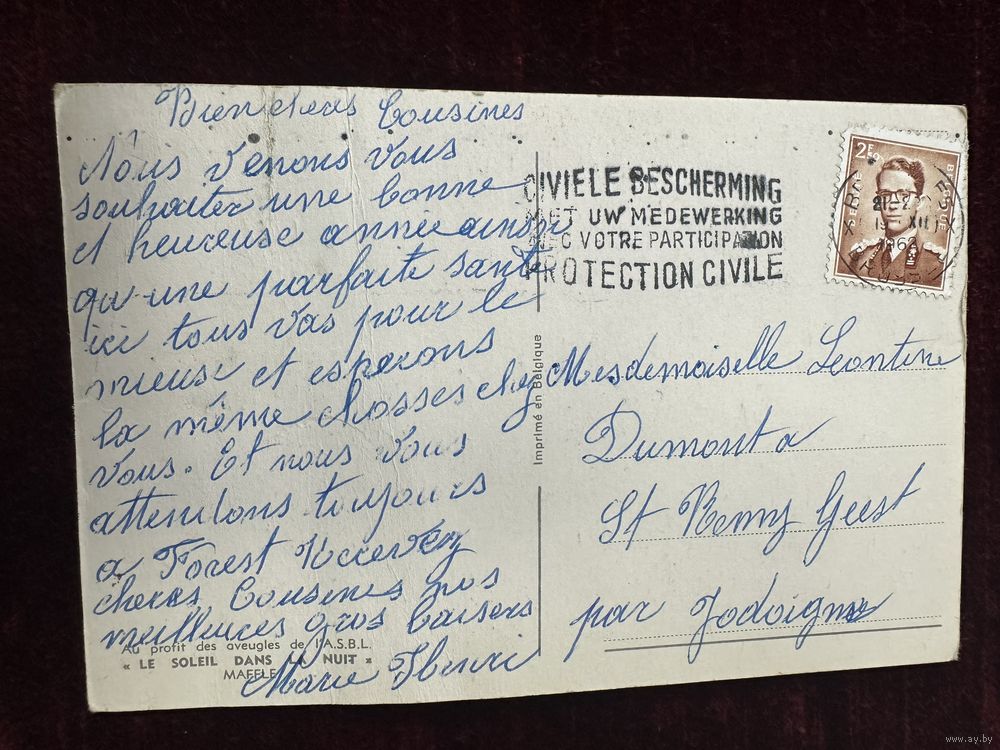 Bien cheres Cousines
Nous venons vous
souhaiter une bonne
et heureuse année ainsi
qu'une parfaite santé
ici tous vas pour le
mieuse et esperons
la même chosses chez
vous. Et nous vous
attendons toujours
a Forest Recevez
cheres Cousines nos
meilleures gros baisers
Marie Henri
Au profit des aveugles de l'A.S.B.L.
« LE SOLEIL DANS LA NUIT »
MAFFLE
Imprimé en Belgique
CIVIELE BESCHERMING
MET UW MEDEWERKING
AVEC VOTRE PARTICIPATION
PROTECTION CIVILE
2F50
XII
196
Mesdemoiselle Leontine
Dumont a
St Remy Geest
par Jodoigne
www.ay.by